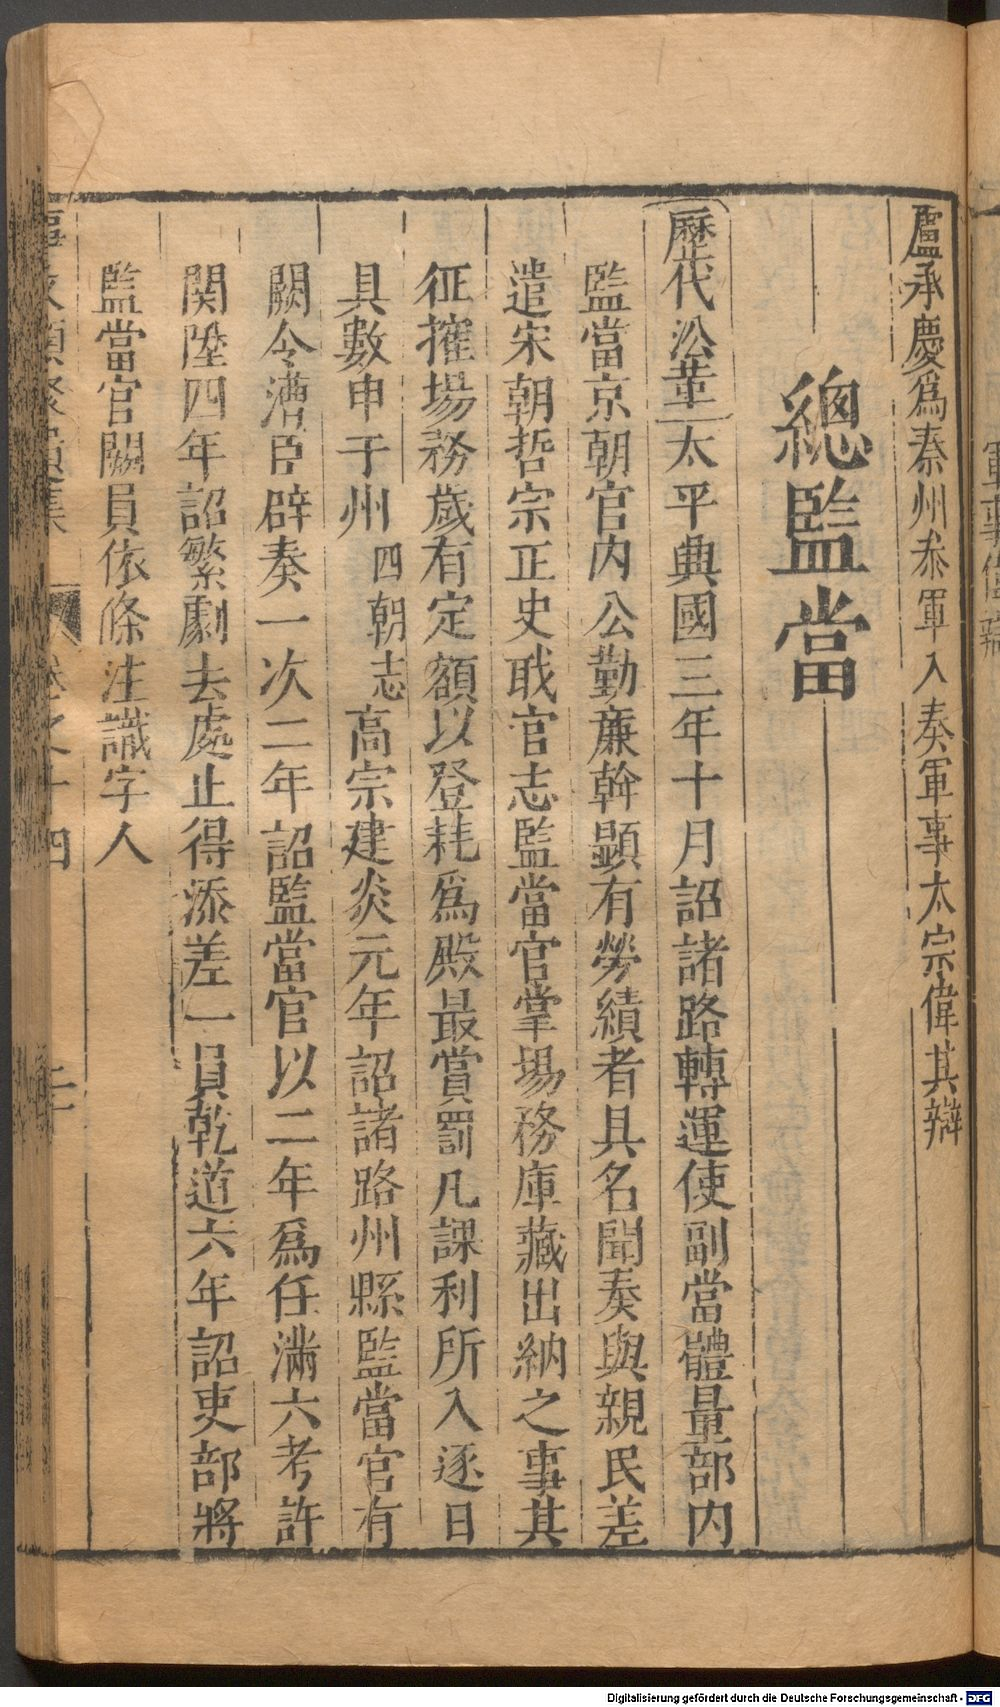 盧承慶爲秦州叅軍入奏軍事太宗偉其辯
總監當
歷代沿革太平興國三年十月詔諸路轉運使副當體量部内
監當京朝官内公勤廉幹顯有勞績者具名聞奏與親民差
遣宋朝哲宗正史職官志監當官掌場務庫藏出納之事其
征搉場務歲有定額以登耗爲殿最賞罰凡課利所入逐日
具數申于州四朝志高宗建炎元年詔諸路州縣監當官有
闕令漕臣辟奏一次二年詔監當官以二年爲任滿六考許
関陞四年詔繁劇去處止得添差一員乾道六年詔吏部將
監當官闕員依條注識字人
卷之十四
二
Digitalisierung gefördert durch die Deutsche Forschungsgemeinschaft - DFG